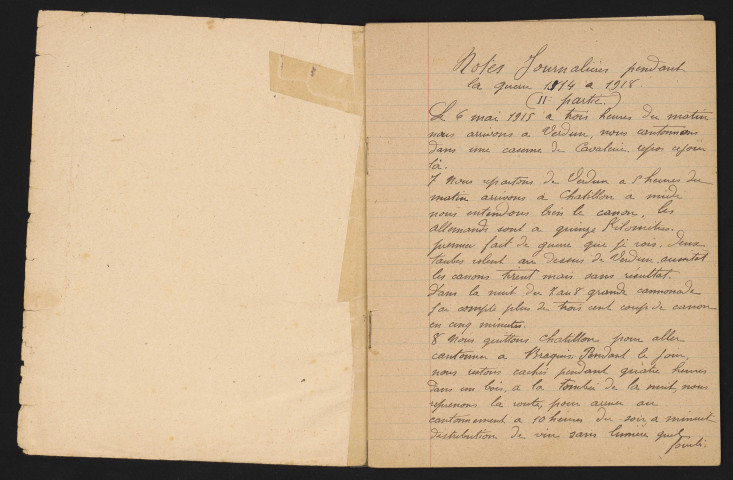 Notes Journalières pendant
la guerre 1914 a 1918
(IIe partie)
Le 6 mai 1915 a trois heures du matin
nous arrivons a Verdun, nous cantonnons
dans une caserne de Cavalerie repos ce jour
là.
7 Nous repartons de Verdun a 5 heures du
matin arrivons à Chatillon a midi
nous entendons bien le canon, les
allemands sont a quinze Kilomètres.
premier fait de guerre que je vois. Deux
taubes volent au dessus de Verdun aussitot
les canons tirent mais sans résultat.
Dans la nuit du 7 au 8 grande cannonade
j'ai compté plus de trois cent coup de canon
en cinq minutes.
8 Nous quittons Chatillon pour aller
cantonner a Braquis. Pendant le jour,
nous restons cachés pendant quatre heures
dans un bois, a la tombée de la nuit, nous
reprenons la route, pour arriver au
cantonnement a 10 heures du soir, a minuit
distribution de vin sans lumière quel
fourbi.